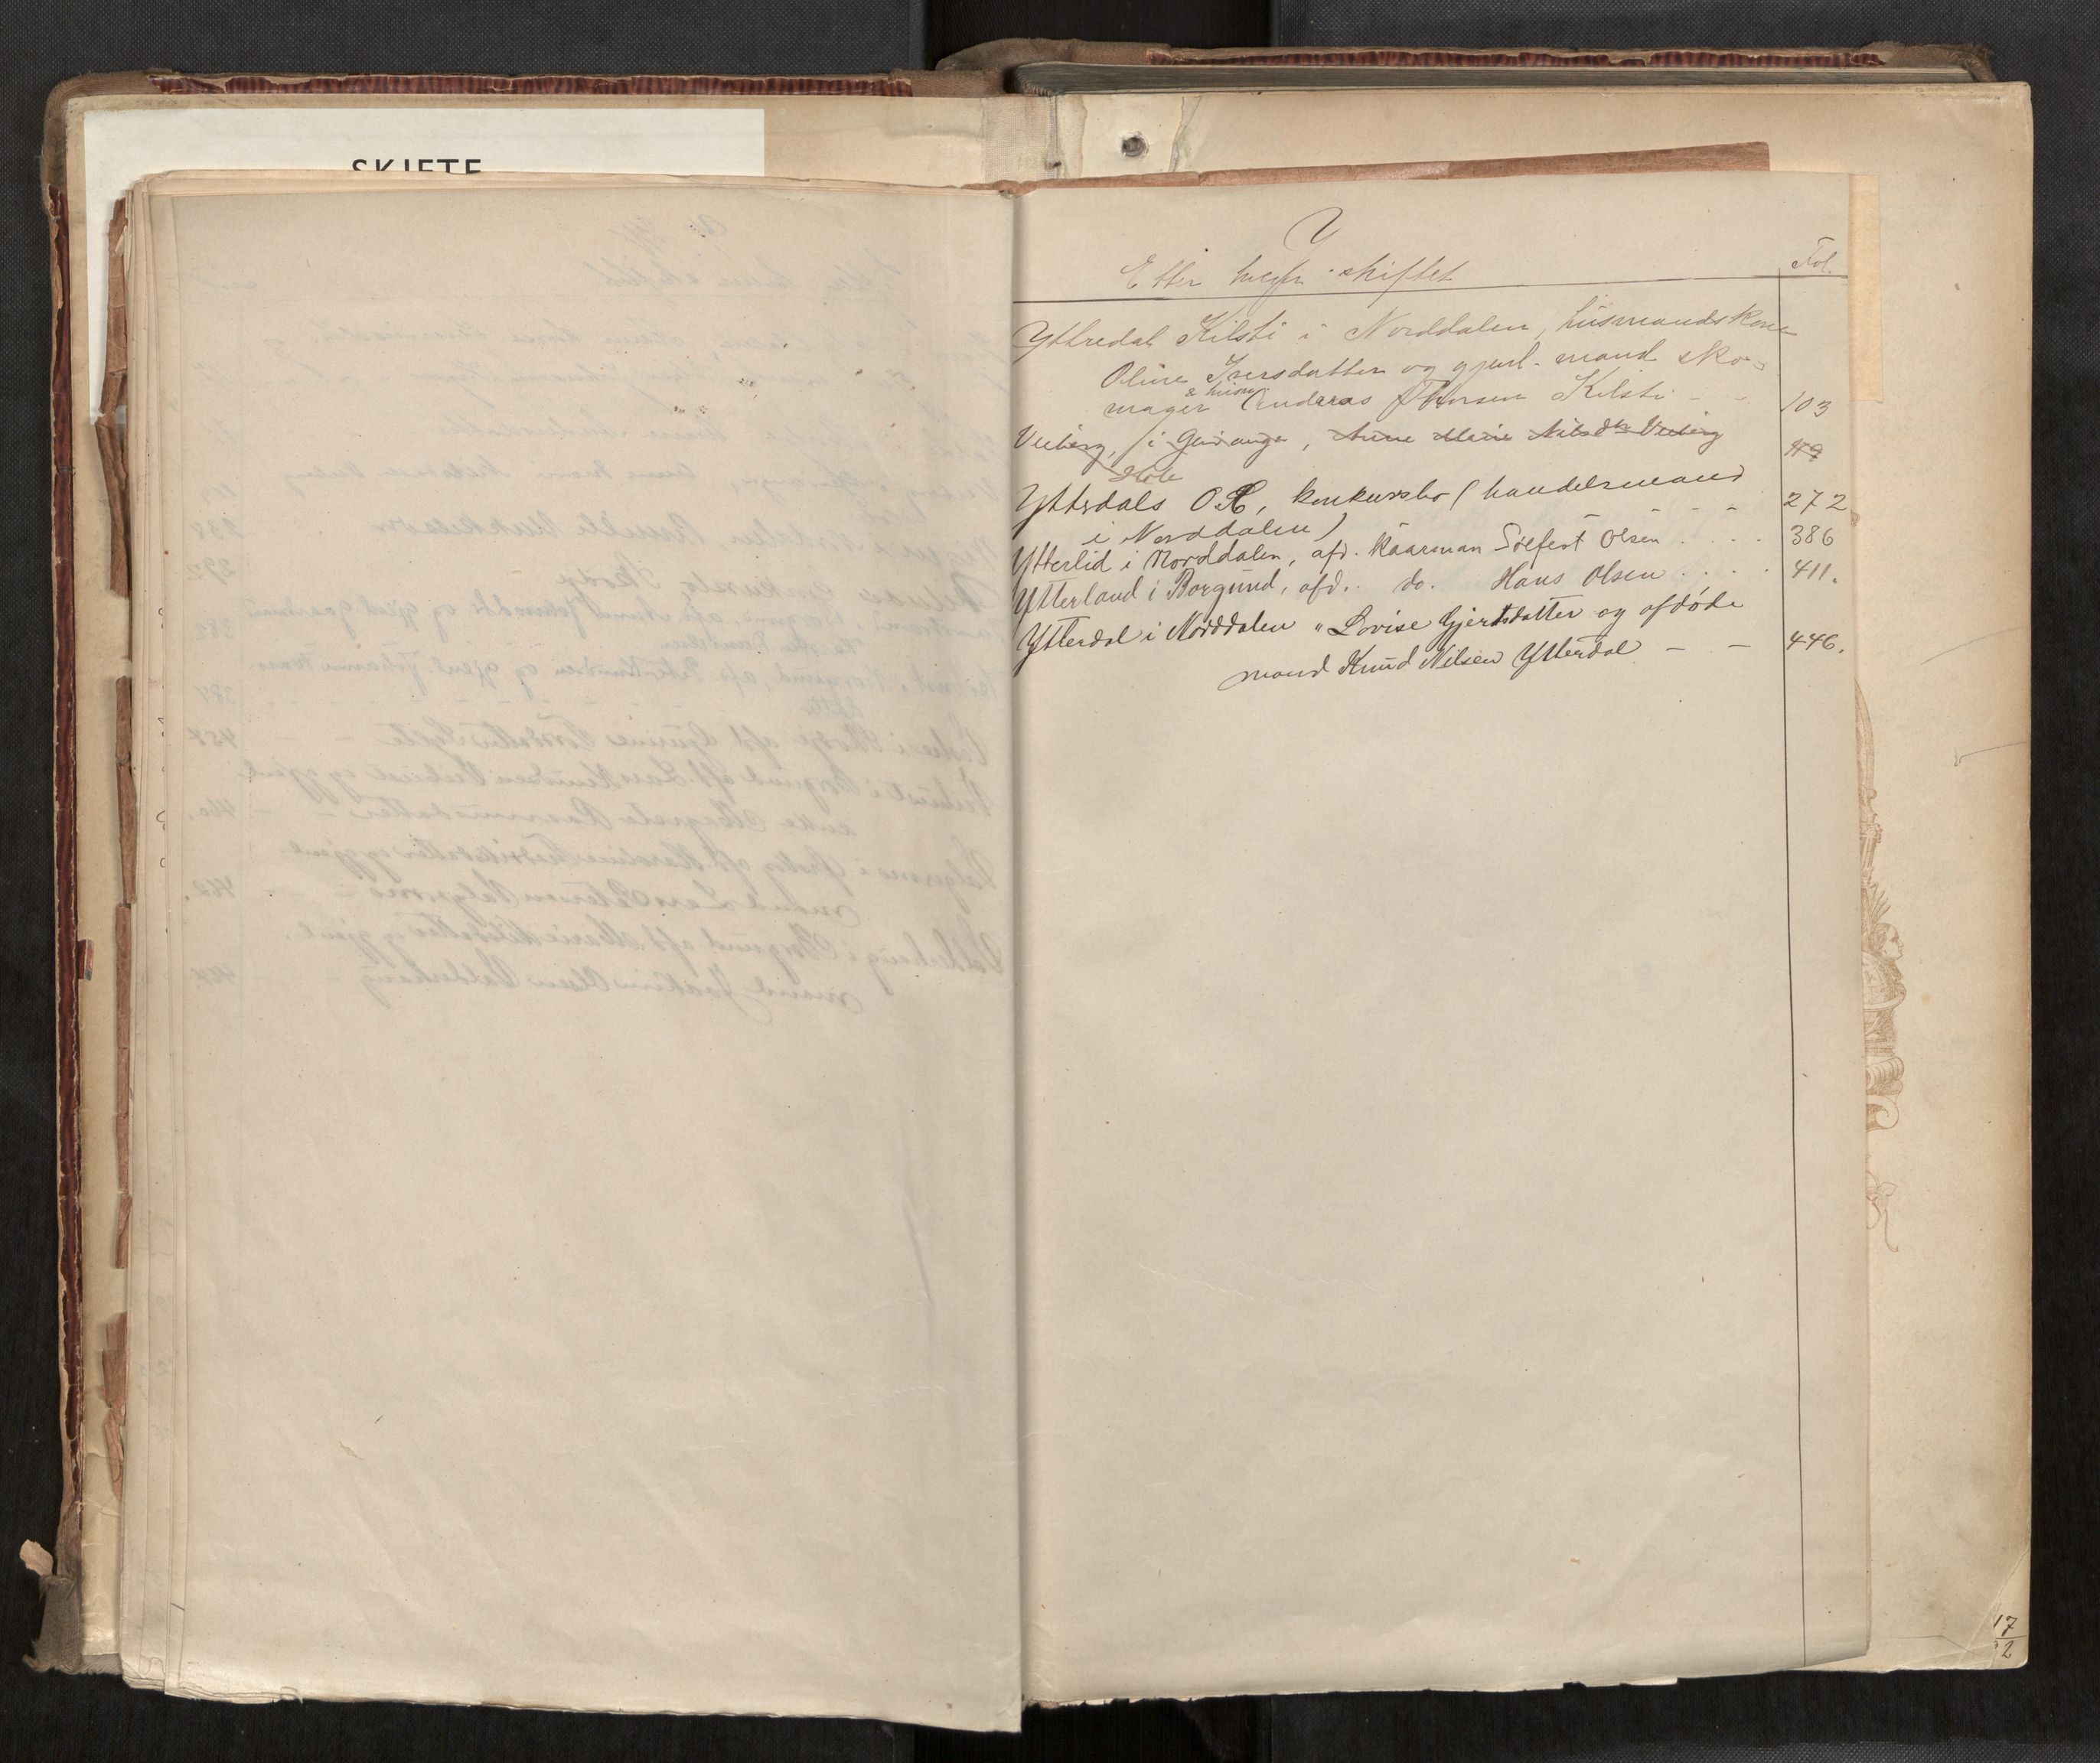 SKIFTE
Y
Efter hvem skiftet
Fol.
Yttredal Kilsti i Norddalen, husmandskone
Oline Iversdatter og gjenl. mand sko-
mager Andreas Thorsen Kilsti - - 103
Veiberg, i Geiranger, Anne Marie Nilsdtr Veiberg 119
Yttrdals O. konkursbo (handelsmand
i Norddalen) - - - - 272
Ytterlid i Norddalen, afd. kaarman Sølfest Olsen . . . . 386
Ytterland i Borgund, afd. do. Hans Olsen . . . . 411.
Ytterdal i Norddalen " Lovise Gjertsdatter og afdøde
mand Knud Nilsen Ytterdal - - 446.
17
2